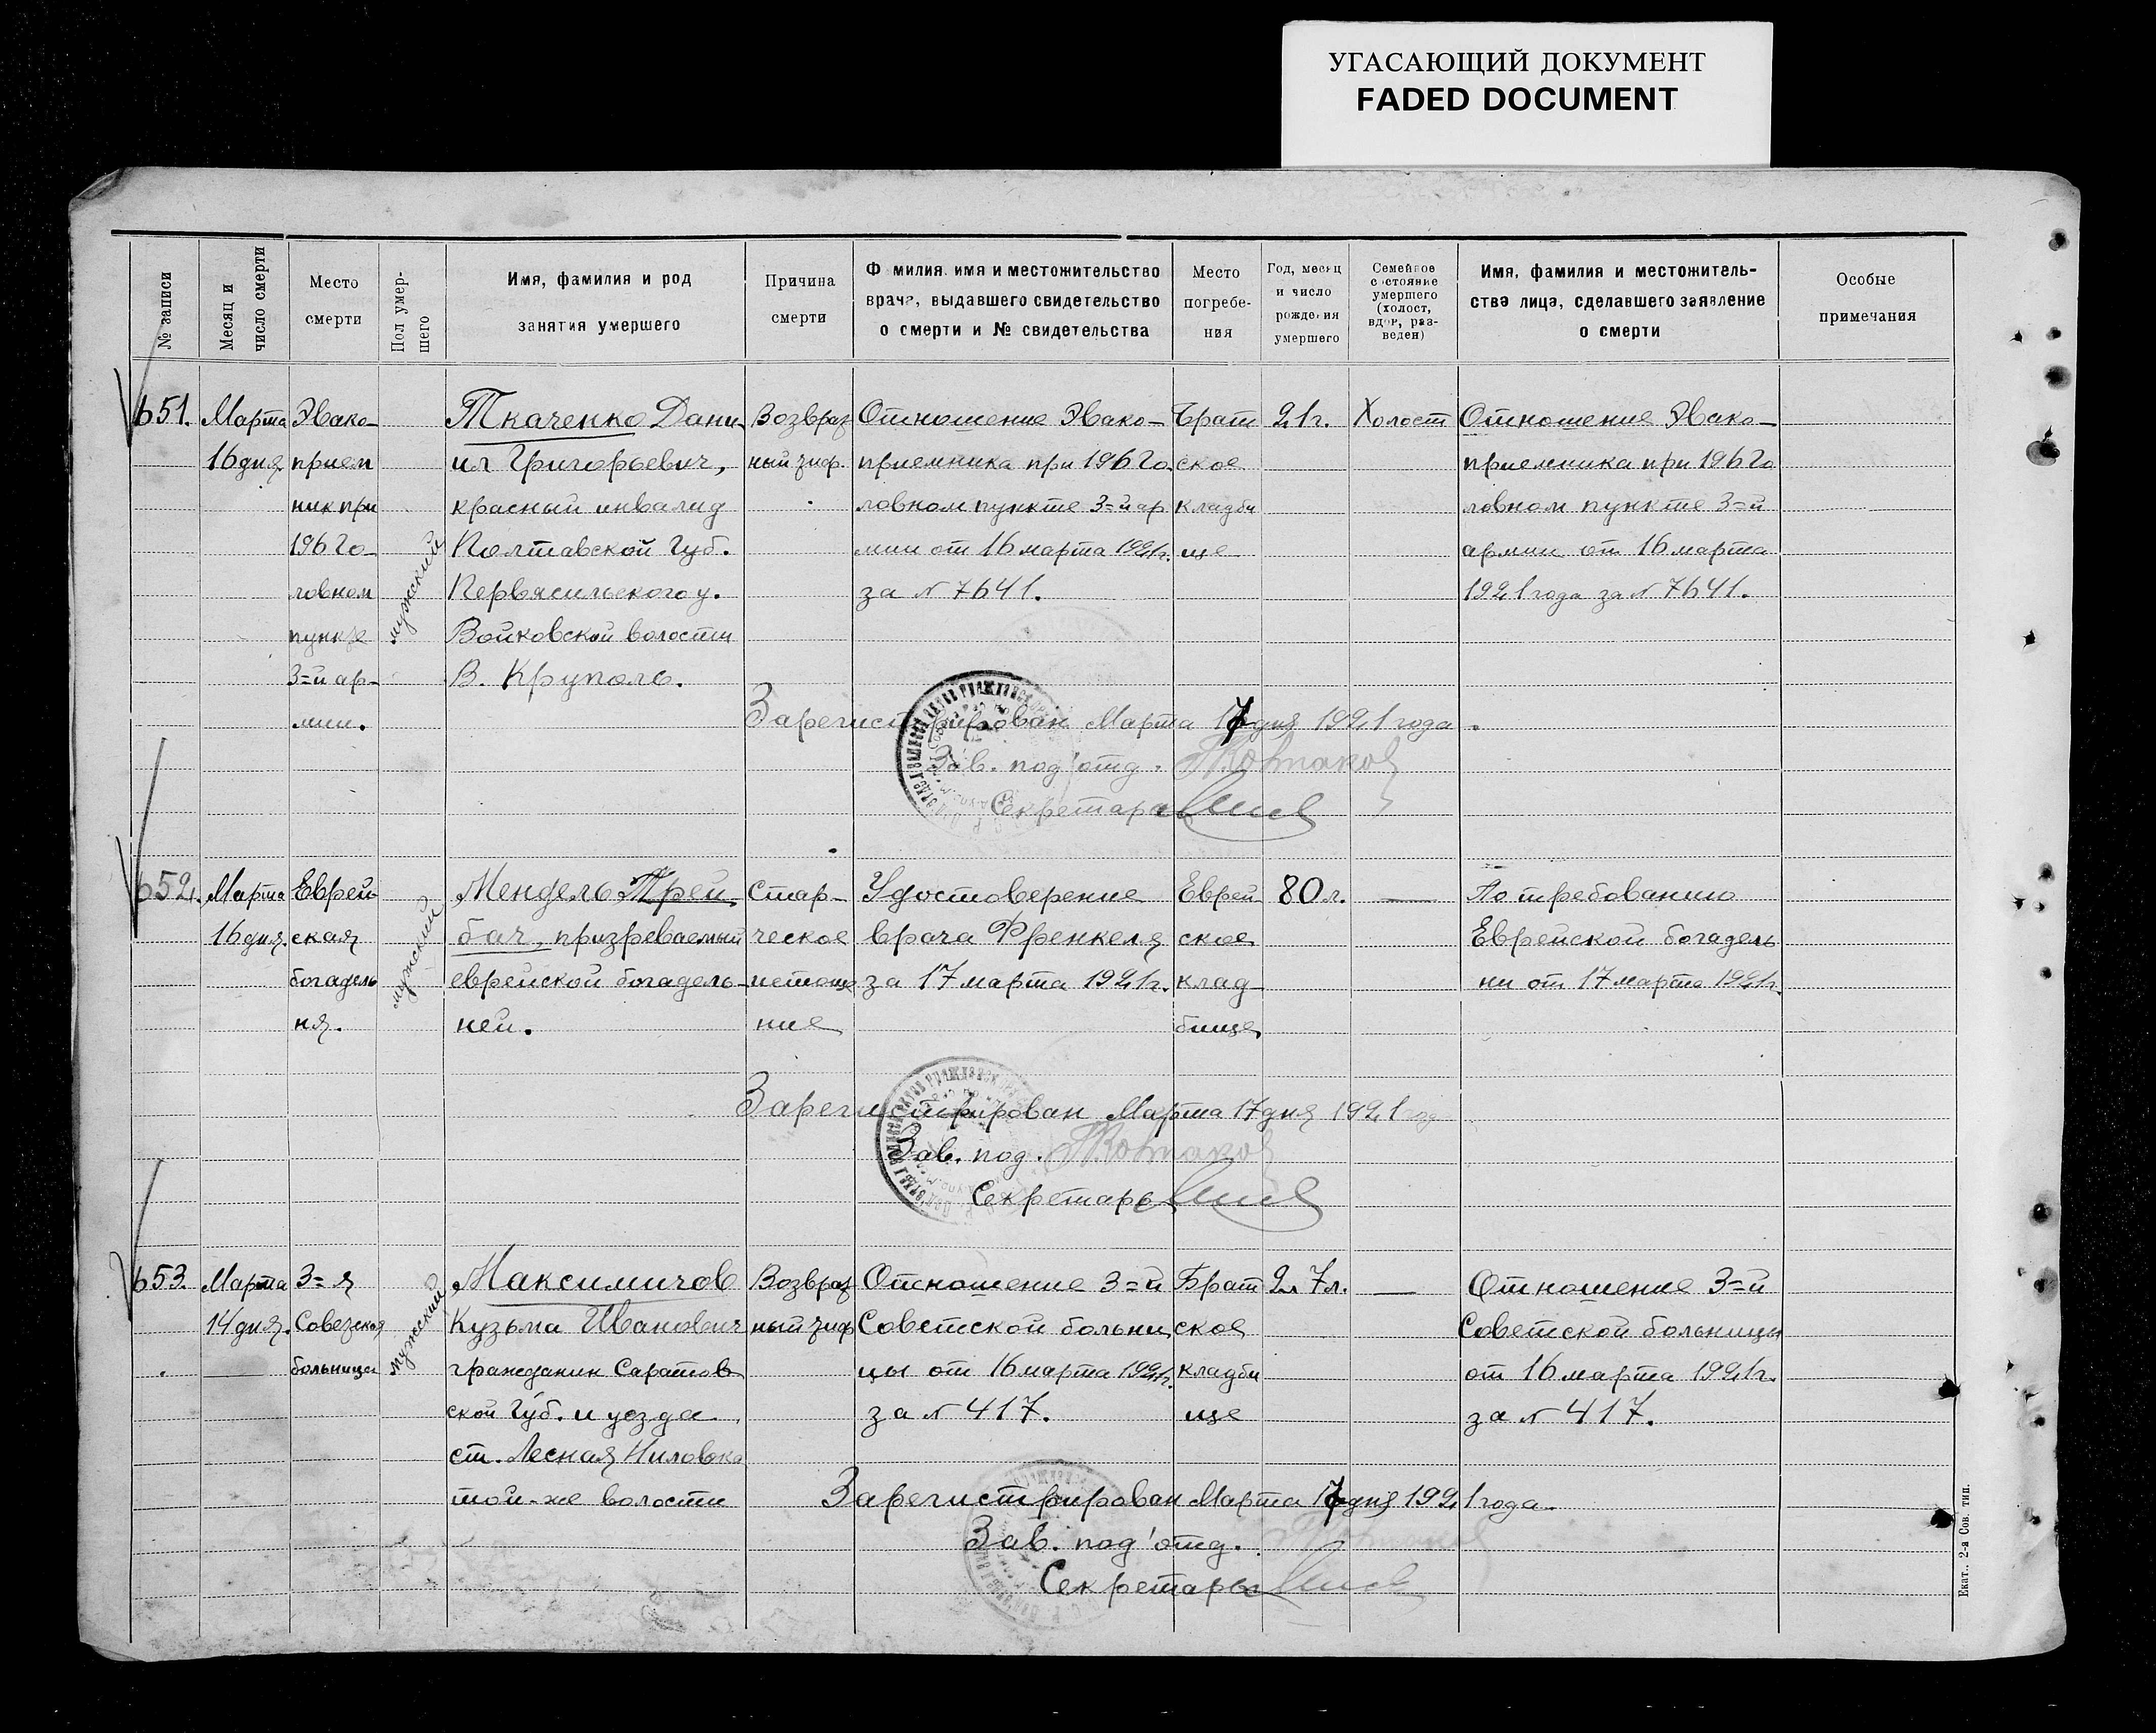 УГАСАЮЩИЙ ДОКУМЕНТ
FADED DOCUMENT
№ записи
Месяц и
число смерти
Место
смерти
Пол умер-
шего
Имя, фамилия и род
занятия умершего
Причина
смерти
Ф милия, имя и местожительство
врача, выдавшего свидетельство
о смерти и № свидетельства
Место
погребе-
ния
Год, месяц
и число
рождения
умершего
Семейное
состояние
умершего
(холост,
вдов, раз-
веден)
Имя, фамилия и местожитель-
ства лица, сделавшего заявление
о смерти
Особые
примечания
651.
Марта
16 дня
Эвако-
прием
ник при
196 Го-
ловном
пункте
3=й ар-
мии.
мужский
Ткаченко Дани
ил Григорьевич,
красный инвалид
Полтавской Губ.
у.
Войковской волости
В. Круполь.
Возвраз
ный тиф.
Отношение Эвако-
приемника при 196 Го
ловном пункте 3=й ар
мии от 16 марта 1921г.
за № 7641.
Брат
ское
кладби
ще
21г.
Холост
Отношение Эвако-
приемника при 196 Го
ловном пункте 3=й
армии от 16 марта
1921 года за № 7641.
Зарегистрирован Марта 17 дня 1921 года.
Зав. под'отд.
Секретарь
652.
Марта
16 дня.
Еврей
ская
богадель
ня.
мужский
Мендель Трей-
бач, призреваемый
еврейской богадель-
ней.
Стар-
ческое
истоще
ние
Удостоверение
врача Френкеля
за 17 марта 1921г.
Еврей
ское
клад-
бище
80 л.
—
По требованию
Еврейской богадель
ни от 17 марта 1921г.
Зарегистрирован Марта 17 дня 1921 год
Зав. под.
Секретарь
653.
Марта
14 дня.
3=я
Советская
больница
мужский
Максимичов
Кузьма Иванович
гражданин Саратов
ской Губ. и уезда
ст. Лесная
той-же волости
Возвраз
ный тиф
Отношение 3=й
Советской больни
цы от 16 марта 1921г.
за № 417.
Брат
ское
кладби
ще
27л.
—
Отношение 3=й
Советской больницы
от 16 марта 1921г.
за № 417.
Зарегистрирован Марта 17 дня 1921 года.
Зав. под'отд.
Секретарь
Екат. 2-я Сов. тип.